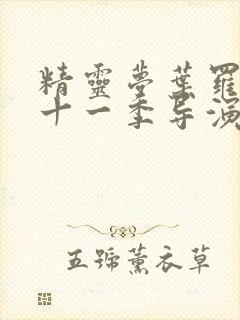 精靈夢葉羅
十一季导演
五號薰衣草